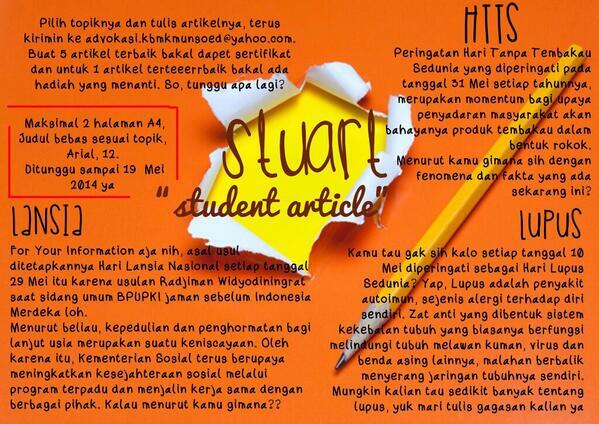 Pilih topiknya dan tulis artikelnya, terus
kirimin ke advokasi.kbmkmunsoed@yahoo.com.
Buat 5 artikel terbaik bakal dapet sertifikat
dan untuk 1 artikel terteeerrbaik bakal ada
hadiah yang menanti. So, tunggu apa lagi?
Maksimal 2 halaman A4,
Judul bebas sesuai topik,
Arial, 12.
Ditunggu sampai 19 Mei
2014 ya
stuart
"student article"
HTTS
Peringatan Hari Tanpa Tembakau
Sedunia yang diperingati pada
tanggal 31 Mei setiap tahunnya,
merupakan momentum bagi upaya
penyadaran masyarakat akan
bahayanya produk tembakau dalam
bentuk rokok.
Menurut kamu gimana sih dengan
fenomena dan fakta yang ada
sekarang ini?
LANSIA
For Your Information aja nih, asal usul
ditetapkannya Hari Lansia Nasional setiap tanggal
29 Mei itu karena usulan Radjiman Widyodiningrat
saat sidang umum BPUPKI jaman sebelum Indonesia
Merdeka loh.
Menurut beliau, kepedulian dan penghormatan bagi
lanjut usia merupakan suatu keniscayaan. Oleh
karena itu, Kementerian Sosial terus berupaya
meningkatkan kesejahteraan sosial melalui
program terpadu dan menjalin kerja sama dengan
berbagai pihak. Kalau menurut kamu gimana??
LUPUS
Kamu tau gak sih kalo setiap tanggal 10
Mei diperingati sebagai Hari Lupus
Sedunia? Yap, Lupus adalah penyakit
autoimun, sejenis alergi terhadap diri
sendiri. Zat anti yang dibentuk sistem
kekebalan tubuh yang biasanya berfungsi
melindungi tubuh melawan kuman, virus dan
benda asing lainnya, malahan berbalik
menyerang jaringan tubuhnya sendiri.
Mungkin kalian tau sedikit banyak tentang
lupus, yuk mari tulis gagasan kalian ya